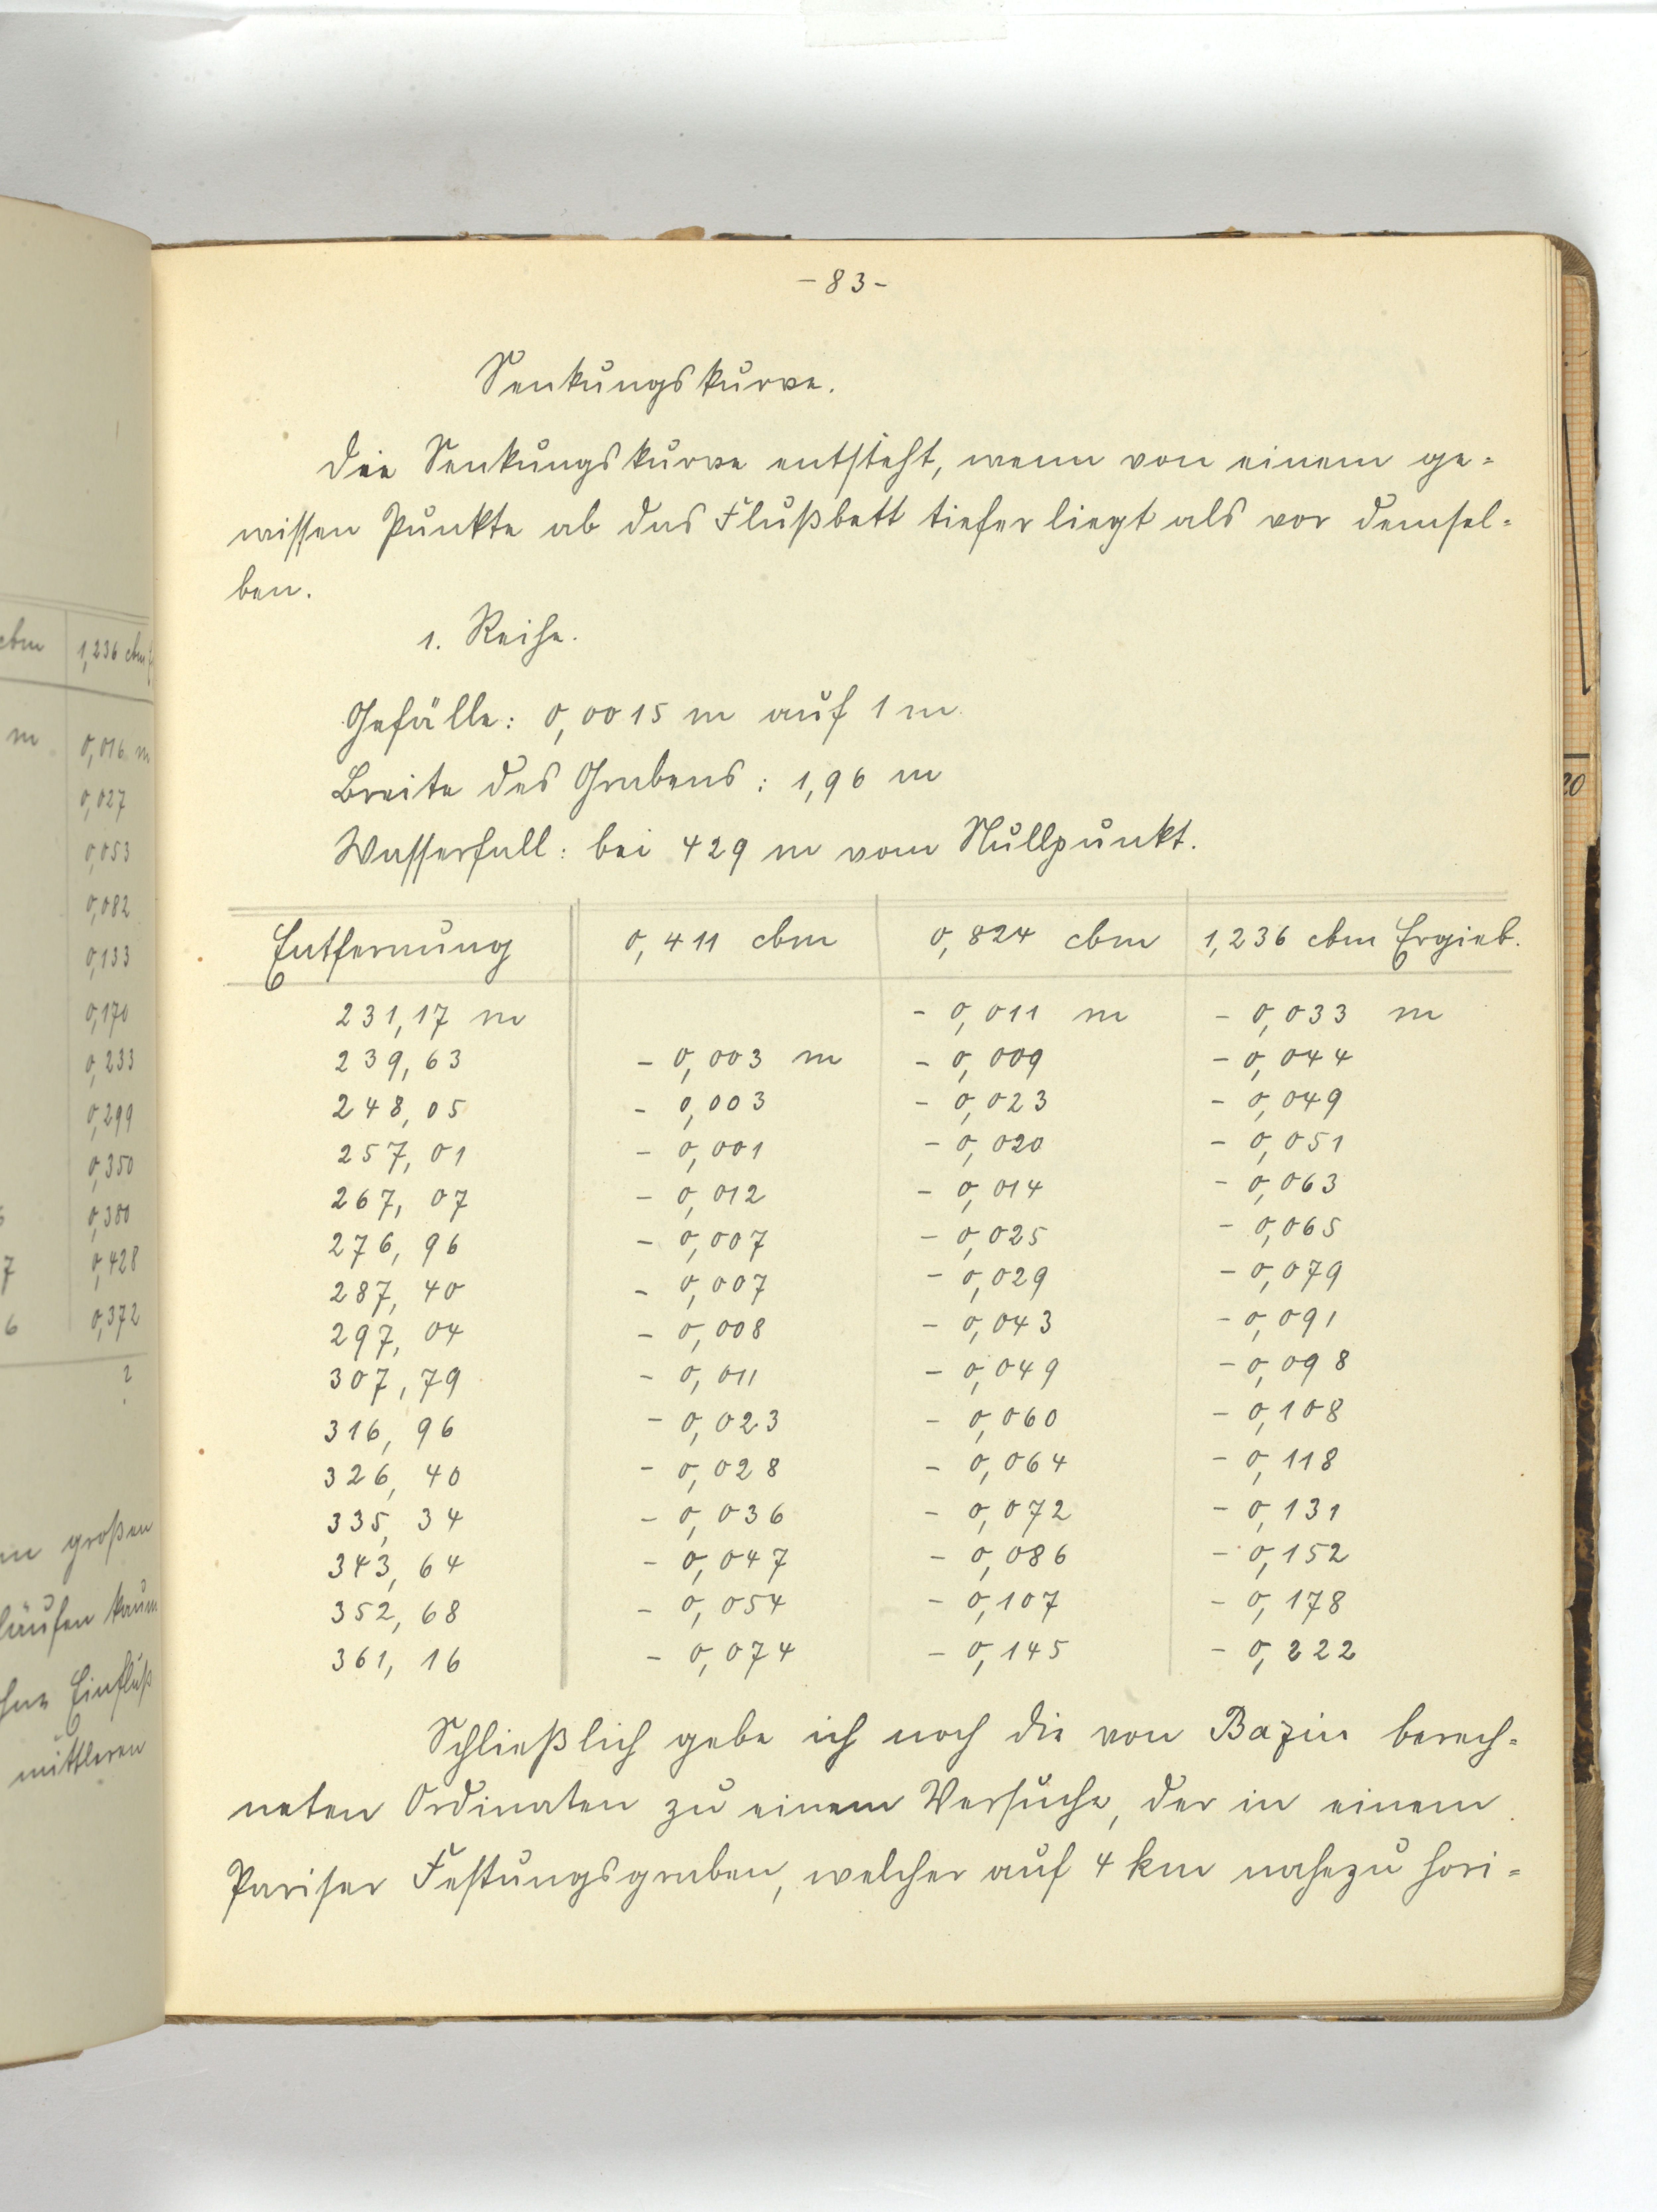 cbm 1,236 cbm
m 0,016 m
0,027
0,053
0,082
0,133
0,170
0,233
0,299
0,350
0,380
7 0,428
6 0,372
?
großen
läufen kaum
Einfluß
mittleren
- 83 -
Senkungskurve.
Die Senkungskurve entsteht, wenn von einem ge-
wissen Punkte ab das Flußbett tiefer liegt als vor demsel-
ben.
1. Reihe.
Gefälle: 0,0015 m auf 1 m.
Breite des Grabens: 1,96 m
Wasserfall: bei 429 m vom Nullpunkt.
Entfernung 0,411 cbm 0,824 cbm 1,236 cbm Ergieb.
231,17 m - 0,011 m - 0,033 m
239,63 - 0,003 m - 0,009 - 0,044
248,05 - 0,003 - 0,023 - 0,049
257,01 - 0,001 - 0,020 - 0,051
267,07 - 0,012 - 0,014 - 0,063
276,96 - 0,007 - 0,025 - 0,065
287,40 - 0,007 - 0,029 - 0,079
297,04 - 0,008 - 0,043 - 0,091
307,79 - 0,011 - 0,049 - 0,098
316,96 - 0,023 - 0,060 - 0,108
326,40 - 0,028 - 0,064 - 0,118
335,34 - 0,036 - 0,072 - 0,131
343,64 - 0,047 - 0,086 - 0,152
352,68 - 0,054 - 0,107 - 0,178
361,16 - 0,074 - 0,145 - 0,222
Schließlich gebe ich noch die von Bazin berech-
neten Ordinaten zu einem Versuche, der in einem
Pariser Festungsgraben, welcher auf 4 km nahezu hori-
20